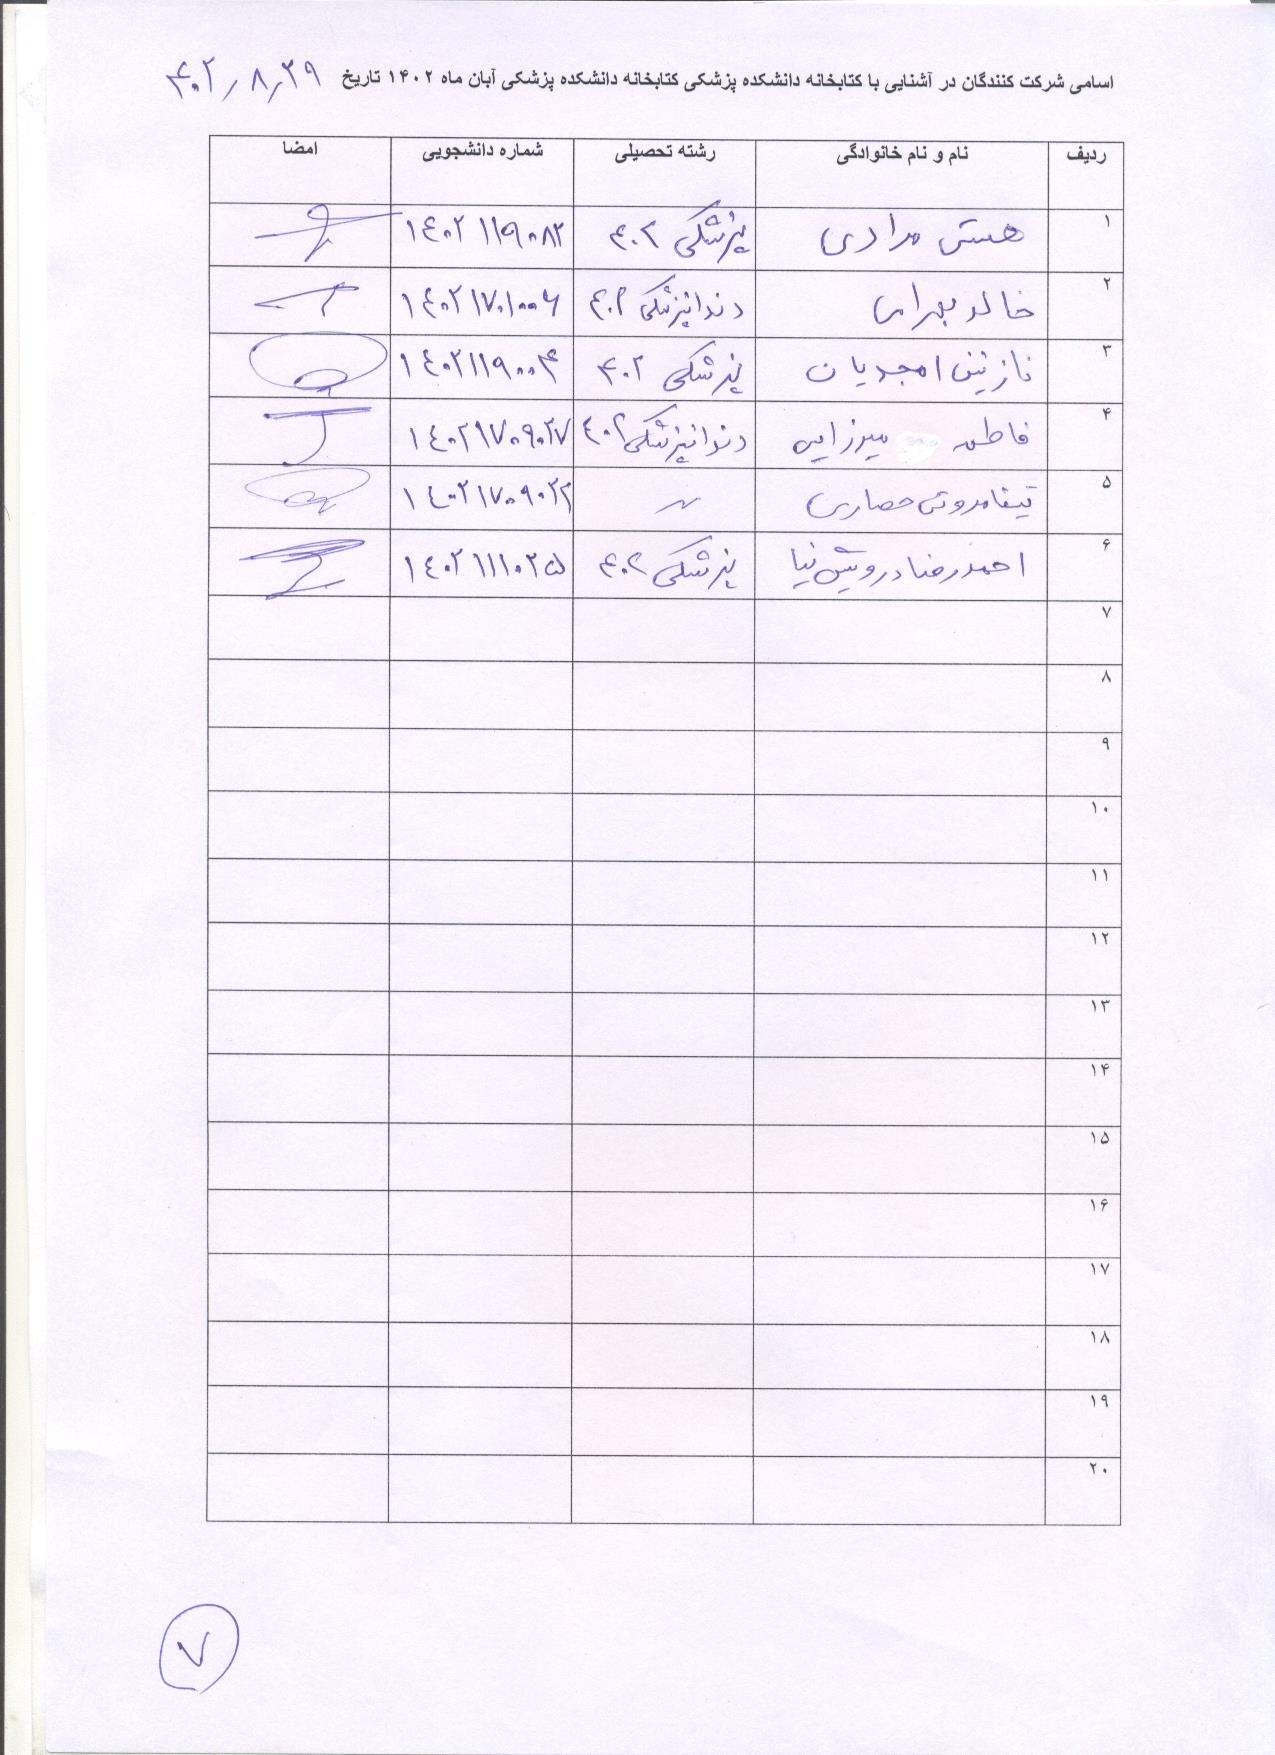 اسامی شرکت کنندگان در آشنایی با کتابخانه دانشکده پزشکی کتابخانه دانشکده پزشکی آبان ماه ۱۴۰۲ تاریخ ۴۰۲/۸/۲۹
ردیف نام و نام خانوادگی رشته تحصیلی شماره دانشجویی امضا
۱ هستی مرادی پزشکی ۴۰۲ ۱۴۰۲۱۱۹۰۸۲
۲ خالد بهرامی دندانپزشکی ۴۰۲ ۱۴۰۲۱۷۰۱۰۰۶
۳ نازنین امجدیان پزشکی ۴۰۲ ۱۴۰۲۱۱۹۰۰۴
۴ فاطمه میرزایی دندانپزشکی ۴۰۲ ۱۴۰۲۱۷۰۹۰۲۷
۵ حصاری 〃 ۱۴۰۲۱۷۰۹۰۲۲
۶ احمدرضا درویش نیا پزشکی ۴۰۲ ۱۴۰۲۱۱۱۰۲۵
۷
۸
۹
۱۰
۱۱
۱۲
۱۳
۱۴
۱۵
۱۶
۱۷
۱۸
۱۹
۲۰
۷